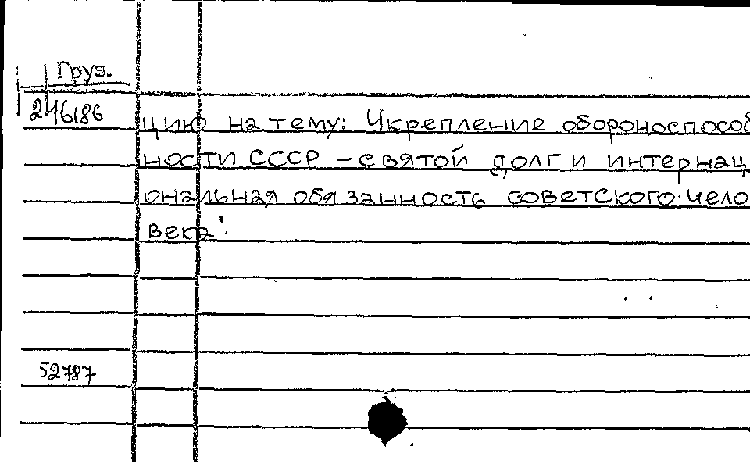 Груз.
246186
цию на тему: Укрепление обороноспособ
ности СССР – святой долг и интернац
иональная обязанность советского чело
века".
52787